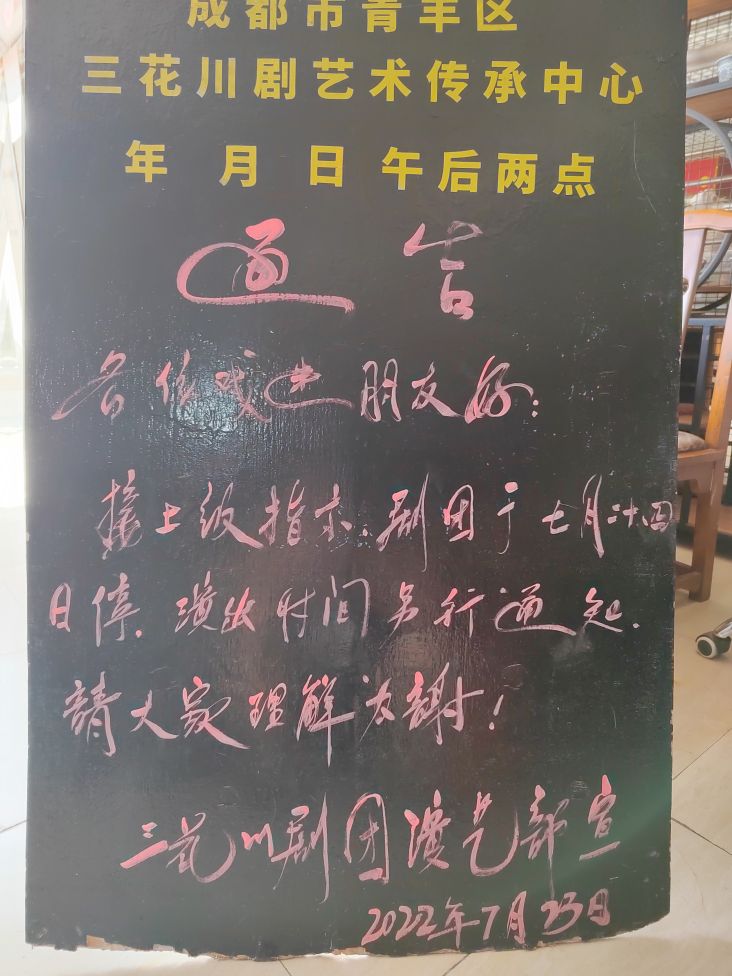 成都市青羊区
三花川剧艺术传承中心
年 月 日 午后两点
通 告
各位戏迷朋友好：
接上级指示，剧团于七月二十四
日停。演出时间另行通知。
請大家理解为謝！
三花川剧团演艺部宣
2022年7月23日